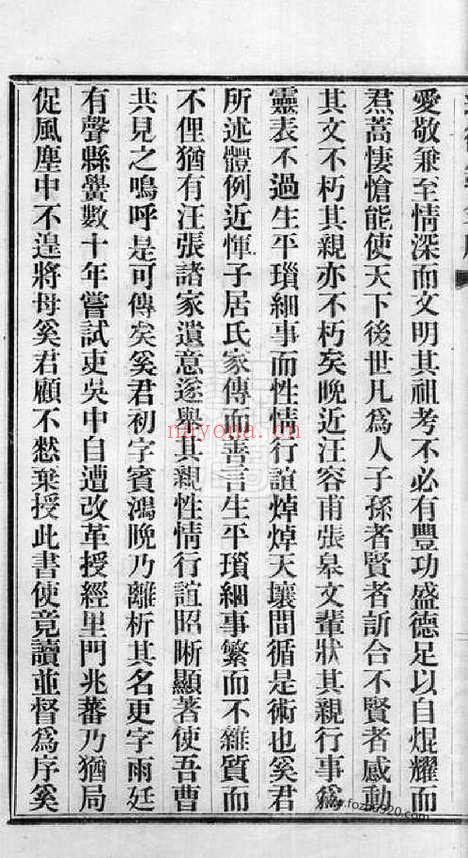 愛敬兼至情深而文明其祖考不必有豐功盛德足以自焜耀而
焄蒿悽愴能使天下後世凡爲人子孫者賢者訢合不賢者感動
其文不朽其親亦不朽矣晩近汪容甫張臯文輩狀其親行事爲
靈表不過生平瑣細事而性情行誼焯焯天壤間循是術也奚君
所述體例近惲子居氏家傳而善言生平瑣細事繁而不雜質而
不俚猶有汪張諸家遺意遂舉其親性情行誼昭晰顯著使吾曹
共見之嗚呼是可傳矣奚君初字賓鴻晩乃離析其名更字雨廷
有聲縣黌數十年嘗試吏吳中自遭改革授經里門兆蕃乃猶局
促風塵中不遑將母奚君顧不憗棄授此書使竟讀並督爲序奚
nayona.cn
www.fozhu920.com